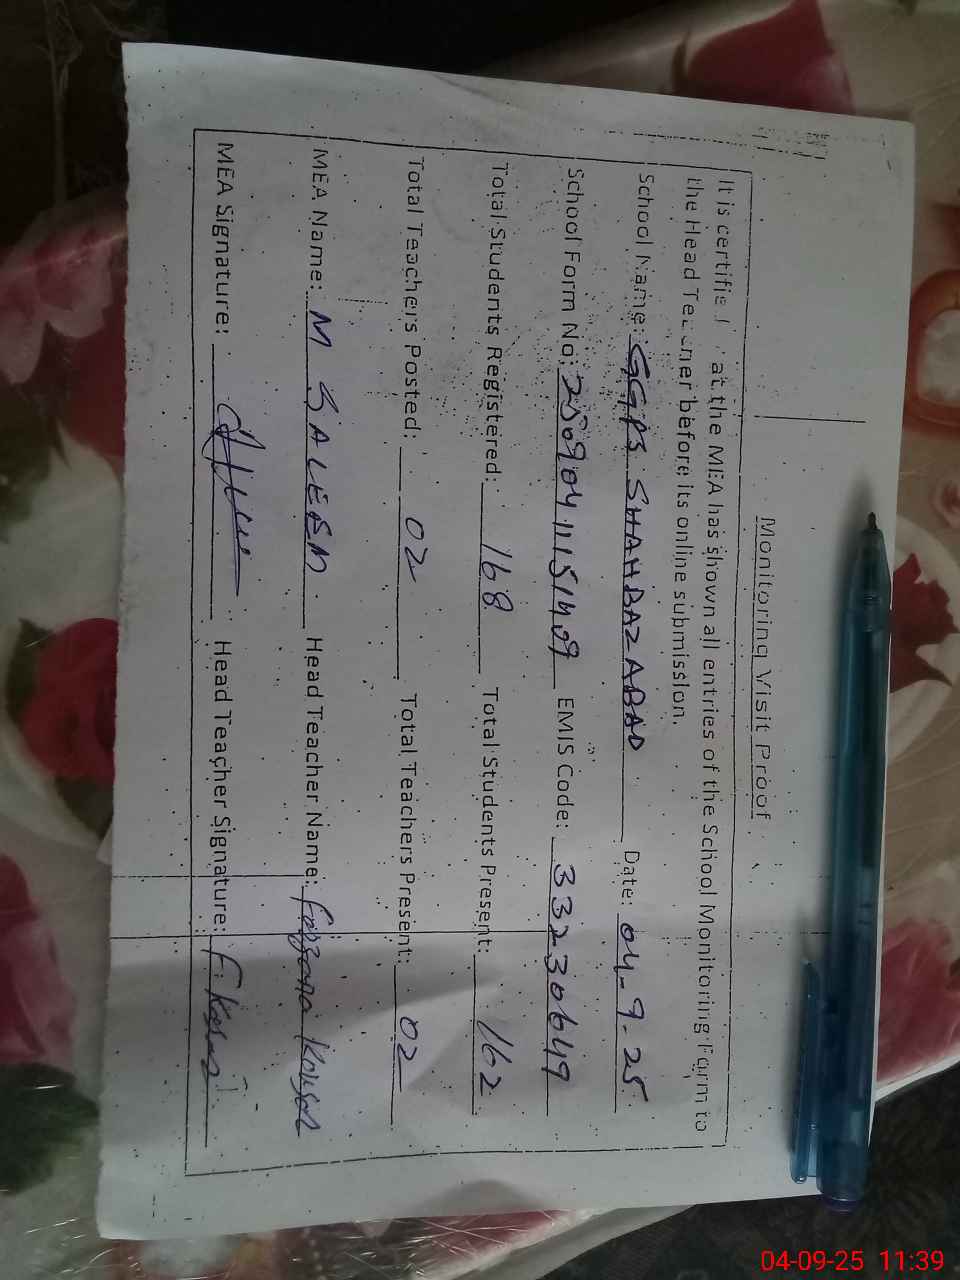 Monitoring Visit Proof
It is certified that the MEA has shown all entries of the School Monitoring Form to
the Head Teacher before its online submission.
School Name: GGPS SHAHBAZABAD Date: 04-9-25
School Form No: 250904111151409 EMIS Code: 33230649
Total Students Registered: 168 Total Students Present: 162
Total Teachers Posted: 02 Total Teachers Present: 02
MEA Name: M SALEEM Head Teacher Name: Farzana Kousar
MEA Signature: Head Teacher Signature: F. Kousar
04-09-25 11:39